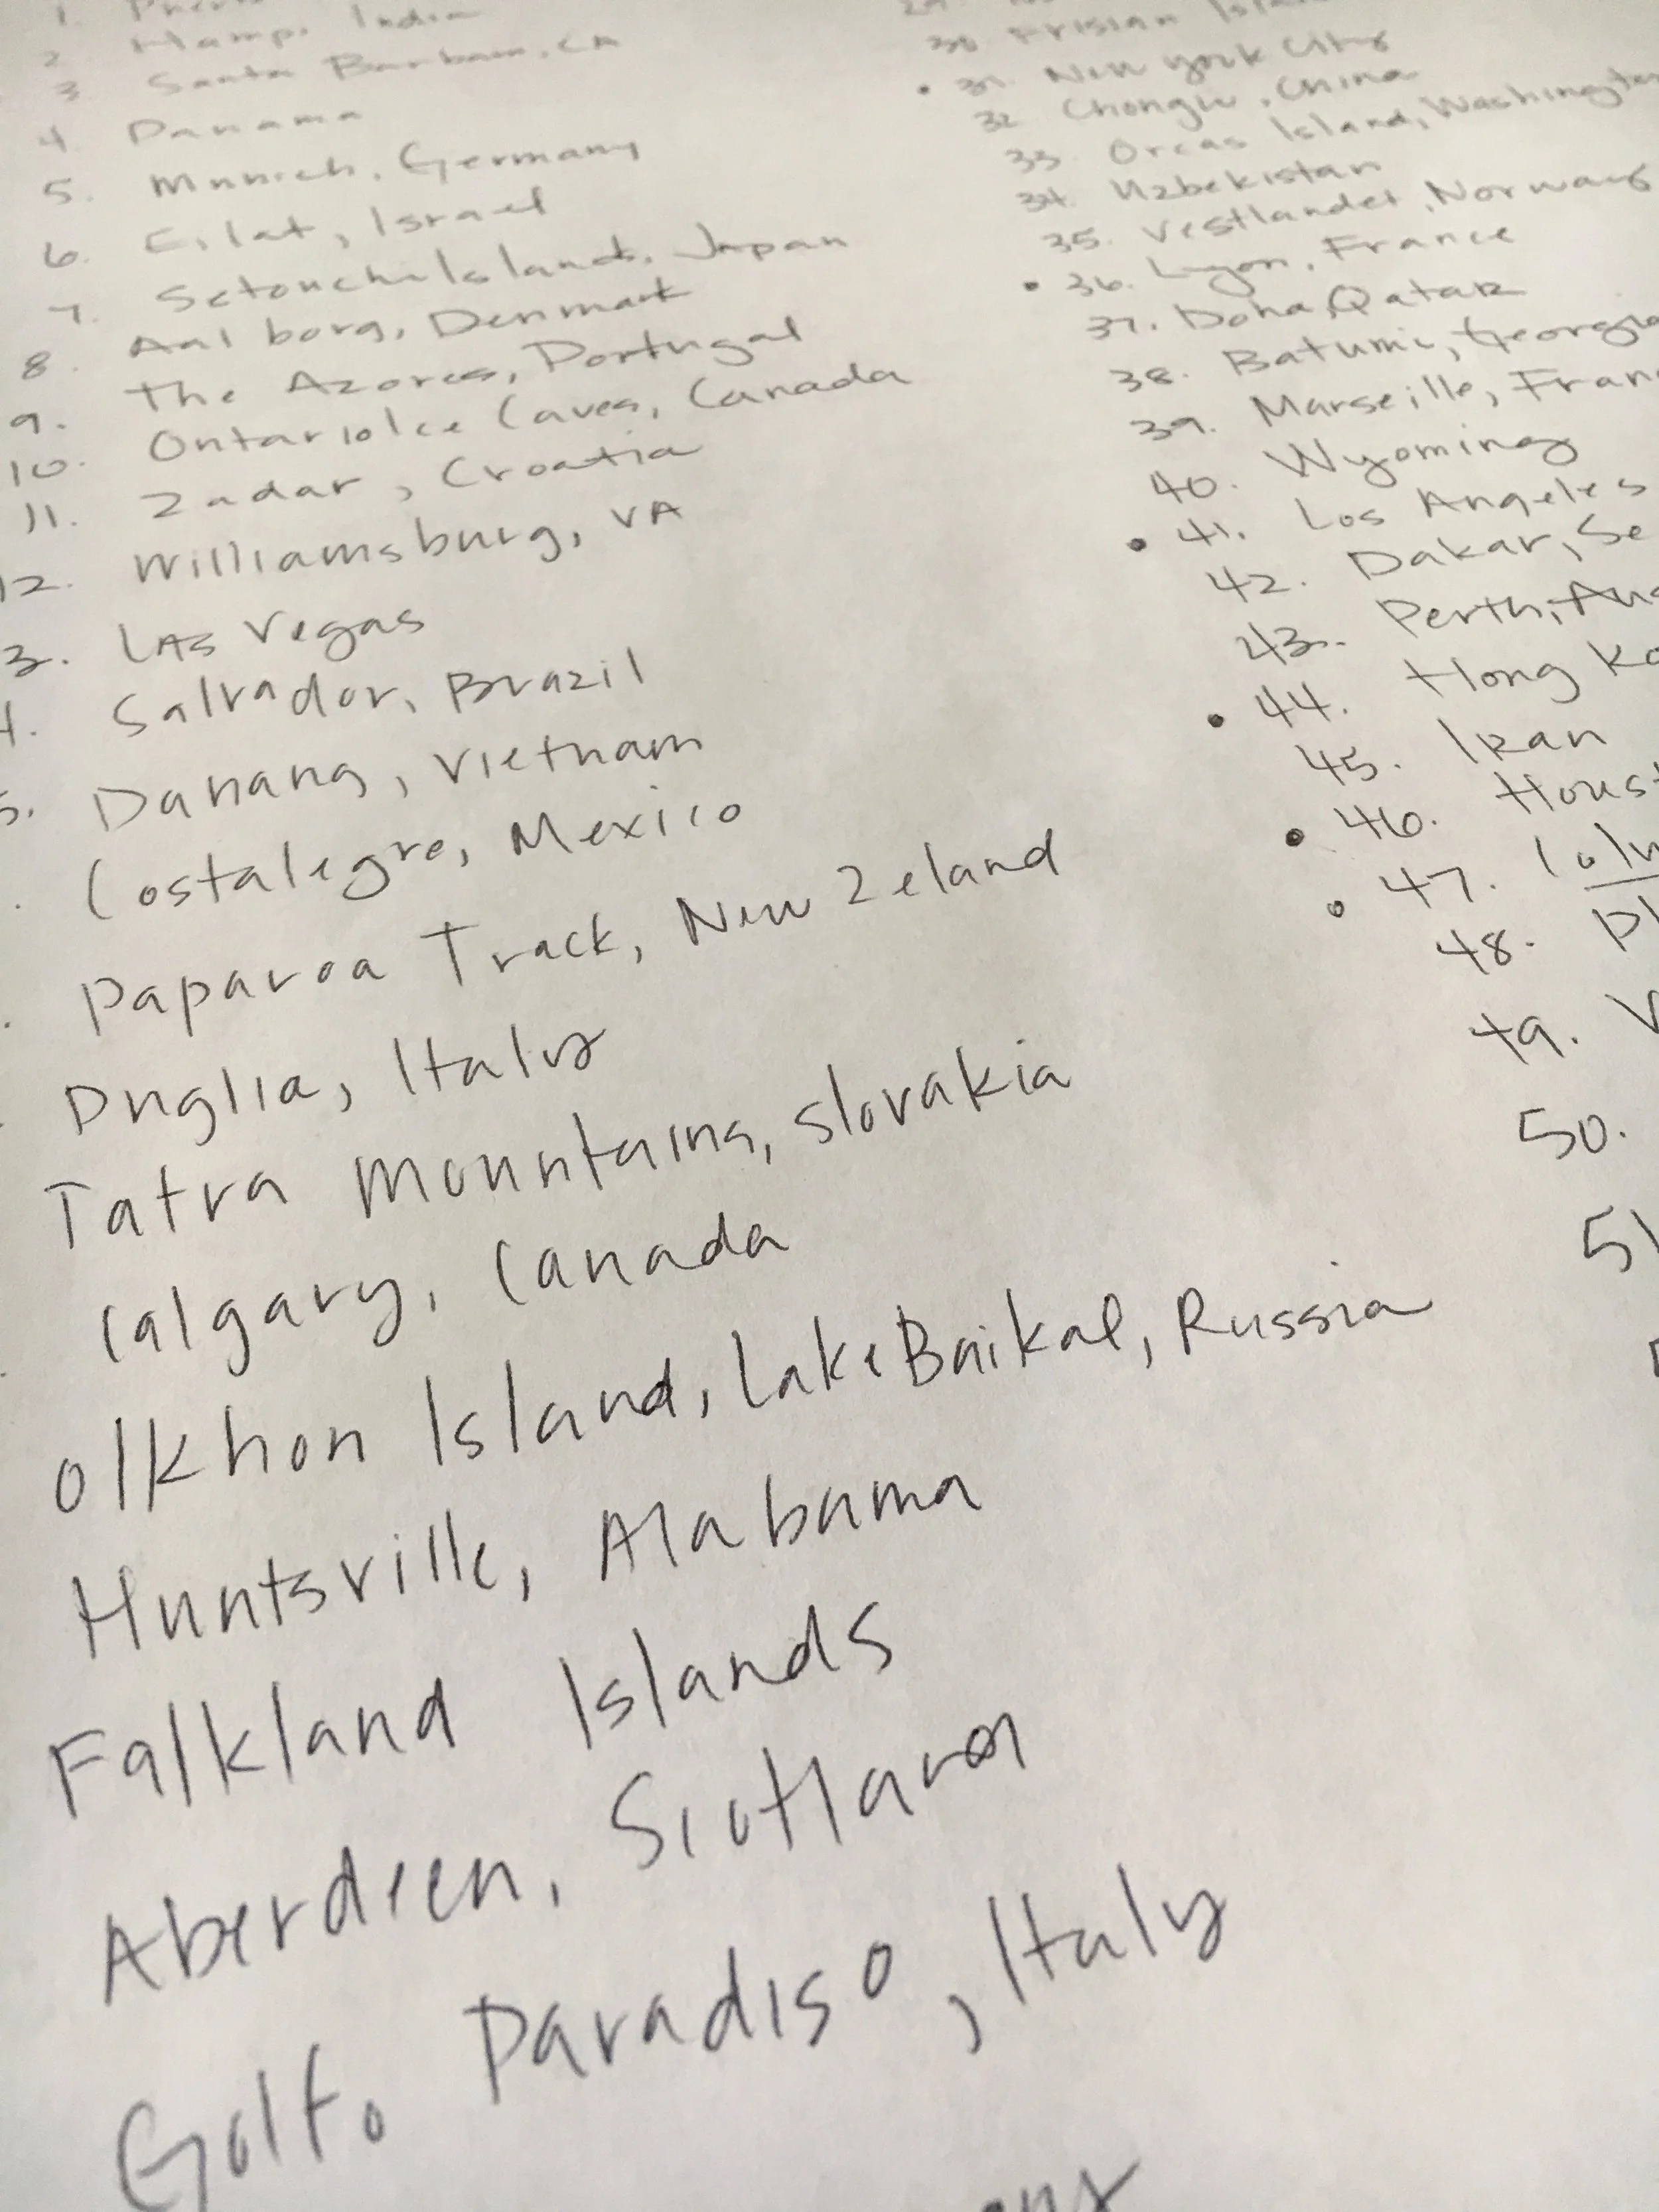 2 Hampi India
3 Santa Barbara, CA
4 Panama
5. Munich, Germany
6. Eilat, Israel
7. Setouchi Islands, Japan
8. Aalborg, Denmark
9. The Azores, Portugal
10. Ontario Ice Caves, Canada
11. Zadar, Croatia
12. Williamsburg, VA
3. LAS Vegas
4. Salvador, Brazil
5. Danang, Vietnam
Costalegre, Mexico
Paparoa Track, New Zeland
Puglia, Italy
Tatra Mountains, Slovakia
Calgary, Canada
Olkhon Island, Lake Baikal, Russia
Huntsville, Alabama
Falkland Islands
Aberdeen, Scotland
Golfo Paradiso, Italy
30 Frisian
• 31. New York City
32 Chongli, China
33. Orcas Island, Washington
34. Uzbekistan
35. Vestlandet, Norway
• 36. Lyon, France
37. Doha, Qatar
38. Batumi, Georgia
39. Marseille, Fran
40. Wyoming
• 41. Los Angeles
42. Dakar, Se
43. Perth, Aus
• 44. Hong Ko
45. Iran
• 46. Houst
• 47.
48.
49.
50.
51